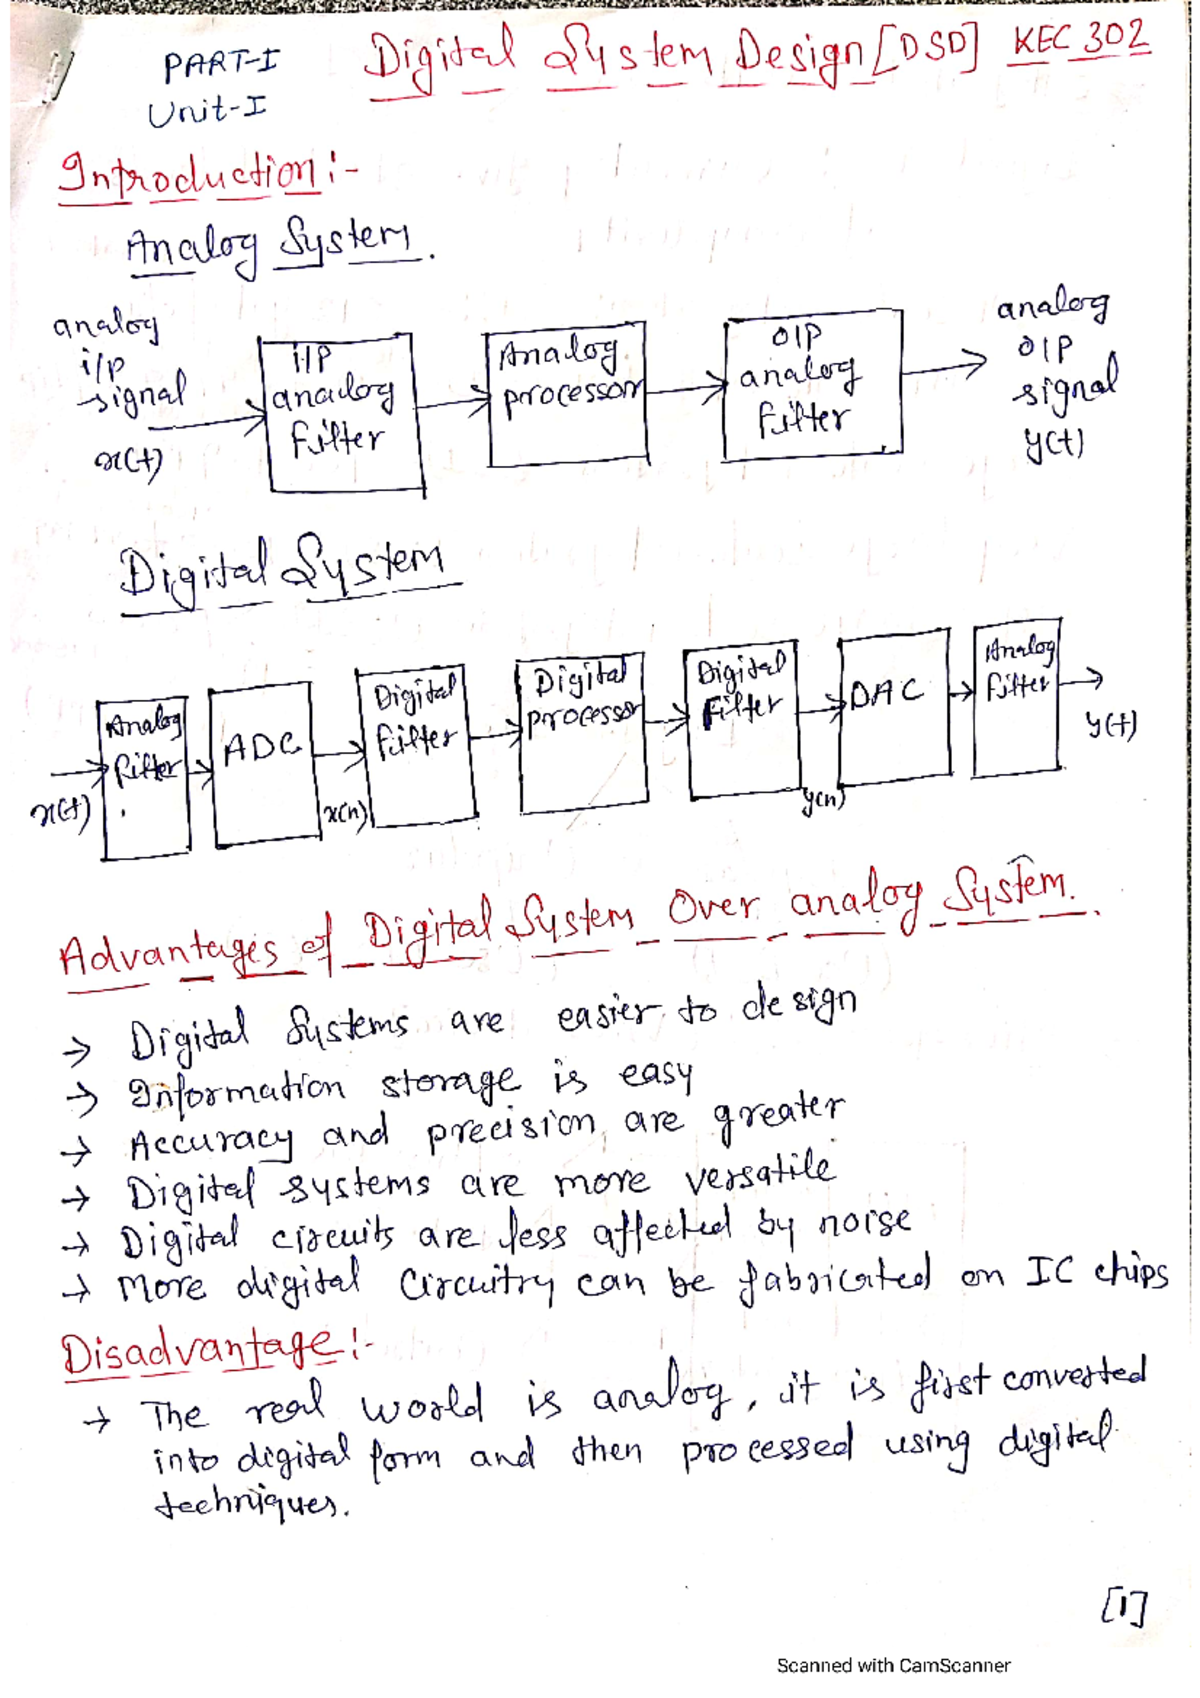 PART-I Digital System Design [DSD] KEC 302
Unit-I
Introduction :-
Analog System.
analog
i/p
signal
x(t)
i/p
analog
filter
Analog
processor
O/P
analog
filter
analog
O/P
signal
y(t)
Digital System
x(t)
Analog
filter
ADC
x(n)
Digital
filter
Digital
processor
Digital
filter
y(n)
DAC
Analog
filter
y(t)
Advantages of Digital System Over analog System.
→ Digital Systems are easier to design
→ Information storage is easy
→ Accuracy and precision are greater
→ Digital systems are more versatile
→ Digital circuits are less affected by noise
→ More digital Circuitry can be fabricated on IC chips
Disadvantage :-
→ The real world is analog, it is first converted
into digital form and then processed using digital
techniques.
[1]
Scanned with CamScanner